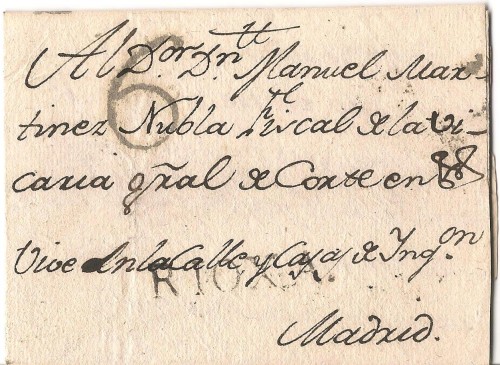 Al D.or D.n Manuel Mar-
tinez Nubla Fiscal de la Vi-
caria gñal de Corte en
Vive en la Calle y Casas de Ynq.on
RIOXA.
Madrid.
6